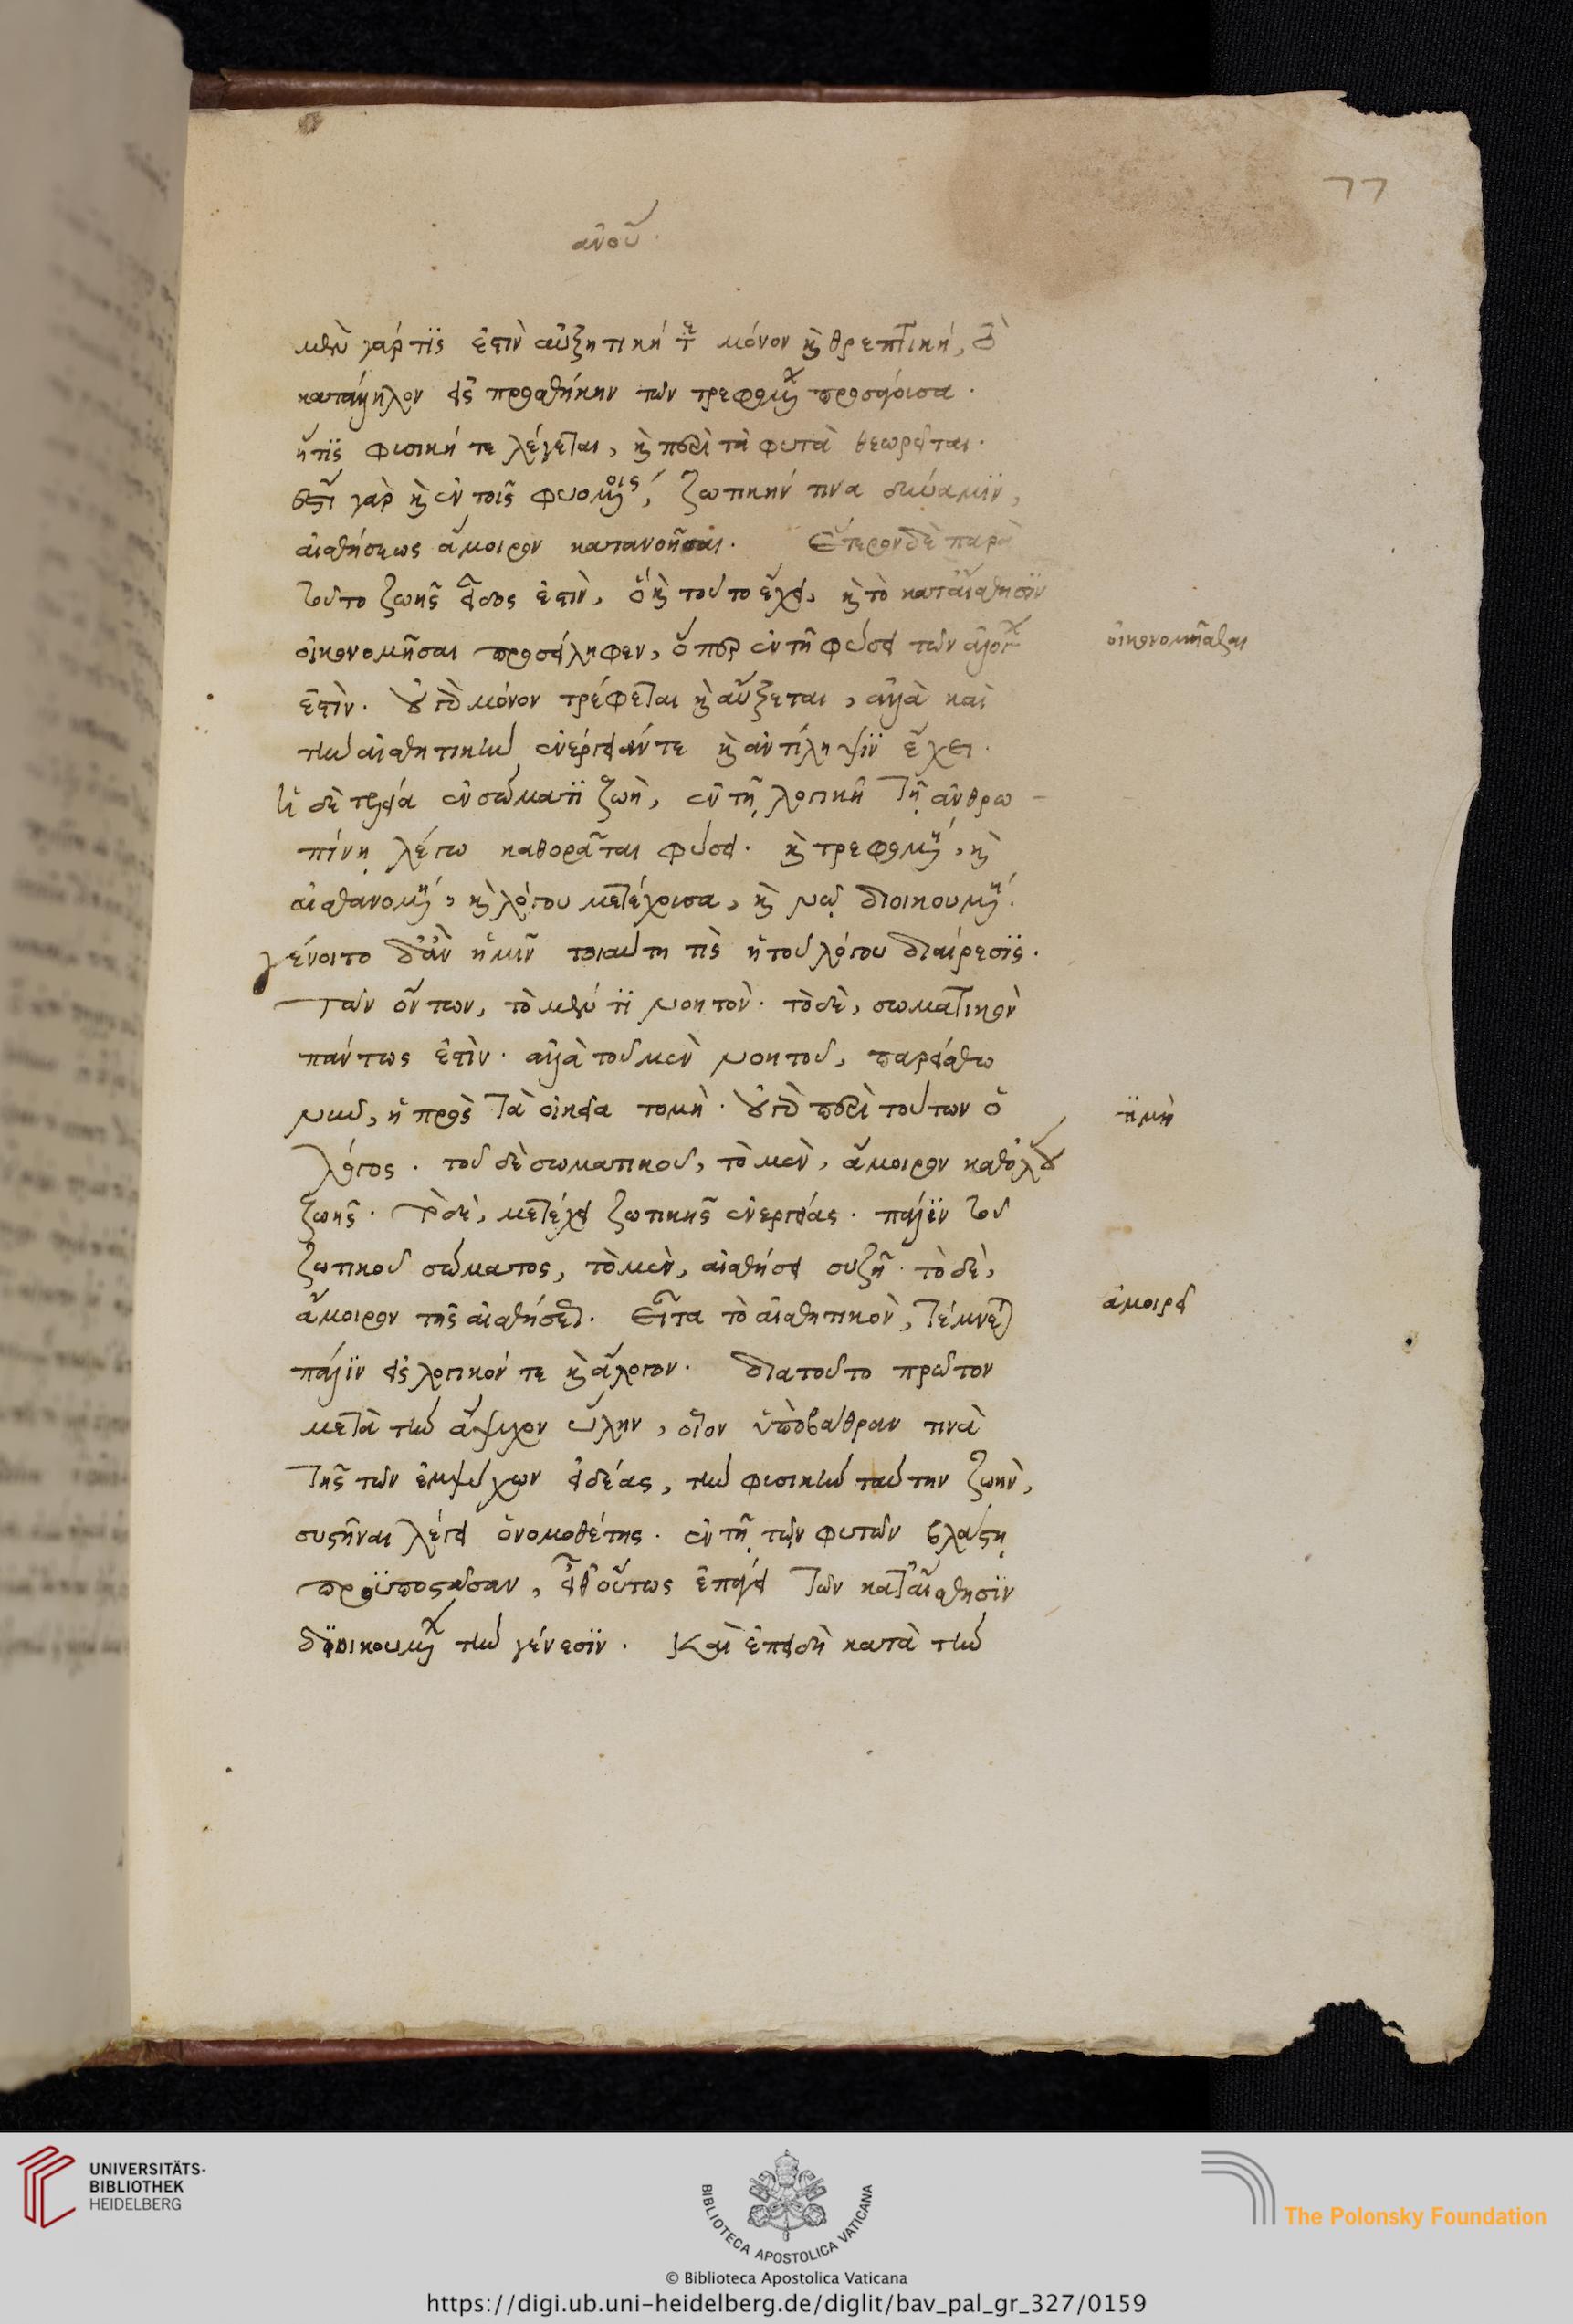 77
ἀνοῦ.
μὲν γάρ τις ἐστὶν αὐξητικὴ τε μόνον καὶ θρεπτικὴ, τὸ
κατάλληλον εἰς προσθήκην τῶν τρεφομένων προσάγουσα.
ἥτις φυσική τε λέγεται, καὶ περὶ τὰ φυτὰ θεωρεῖται.
ἔστι γὰρ καὶ ἐν τοῖς φυομένοις, ζωτικήν τινα δύναμιν,
αἰσθήσεως ἄμοιρον κατανοῆσαι. Ἕτερον δὲ παρὰ
τοῦτο ζωῆς εἶδος ἐστὶν, ὃ καὶ τοῦτο ἔχει, καὶ τὸ κατ' αἴσθησιν
οἰκονομῆσαι προσείληφεν, ὅπερ ἐν τῇ φύσει τῶν ἀλόγων
οἰκονομῆσθαι
ἐστὶν. οὐ γὰρ μόνον τρέφεται καὶ αὔξεται, ἀλλὰ καὶ
τὴν αἰσθητικὴν ἐνέργειάν τε καὶ ἀντίληψιν ἔχει.
ἡ δὲ τελεία ἐν σώματι ζωὴ, ἐν τῇ λογικῇ τῇ ἀνθρω-
πίνῃ λέγω καθορᾶται φύσει. καὶ τρεφομένη, καὶ
αἰσθανομένη, καὶ λόγου μετέχουσα, καὶ νῷ διοικουμένη.
γένοιτο δ' ἂν ἡμῖν τοιαύτη τὶς ἡ τοῦ λόγου διαίρεσις.
τῶν ὄντων, τὸ μέν τι νοητὸν. τὸ δὲ, σωματικὸν
πάντως ἐστὶν. ἀλλὰ τοῦ μὲν νοητοῦ, παρείσθω
νῦν, ἡ πρὸς τὰ οἰκεῖα τομὴ. οὐ γὰρ περὶ τούτων ὁ
τιμὴ
λόγος. τοῦ δὲ σωματικοῦ, τὸ μὲν, ἄμοιρον καθόλου
ζωῆς. τὸ δὲ, μετέχει ζωτικῆς ἐνεργείας. πάλιν τοῦ
ζωτικοῦ σώματος, τὸ μὲν, αἰσθήσει συζῇ. τὸ δὲ,
ἄμοιρον τῆς αἰσθήσεως. Εἶτα τὸ αἰσθητικὸν, τέμνεται
ἀμοιρεῖ
πάλιν εἰς λογικόν τε καὶ ἄλογον. διατοῦτο πρῶτον
μετὰ τὴν ἄψυχον ὕλην, οἷον ὑποβάθραν τινὰ
τῆς τῶν ἐμψύχων ἰδέας, τὴν φυσικὴν ταύτην ζωὴν,
συστῆναι λέγει ὁ νομοθέτης. ἐν τῇ τῶν φυτῶν βλάστῃ
προϋποστᾶσαν, εἶθ' οὕτως ἐπάγει τῶν κατ' αἴσθησιν
διοικουμένων τὴν γένεσιν. Καὶ ἐπειδὴ κατὰ τὴν
UNIVERSITÄTS-
BIBLIOTHEK
HEIDELBERG
BIBLIOTECA APOSTOLICA VATICANA
The Polonsky Foundation
© Biblioteca Apostolica Vaticana
https://digi.ub.uni-heidelberg.de/diglit/bav_pal_gr_327/0159